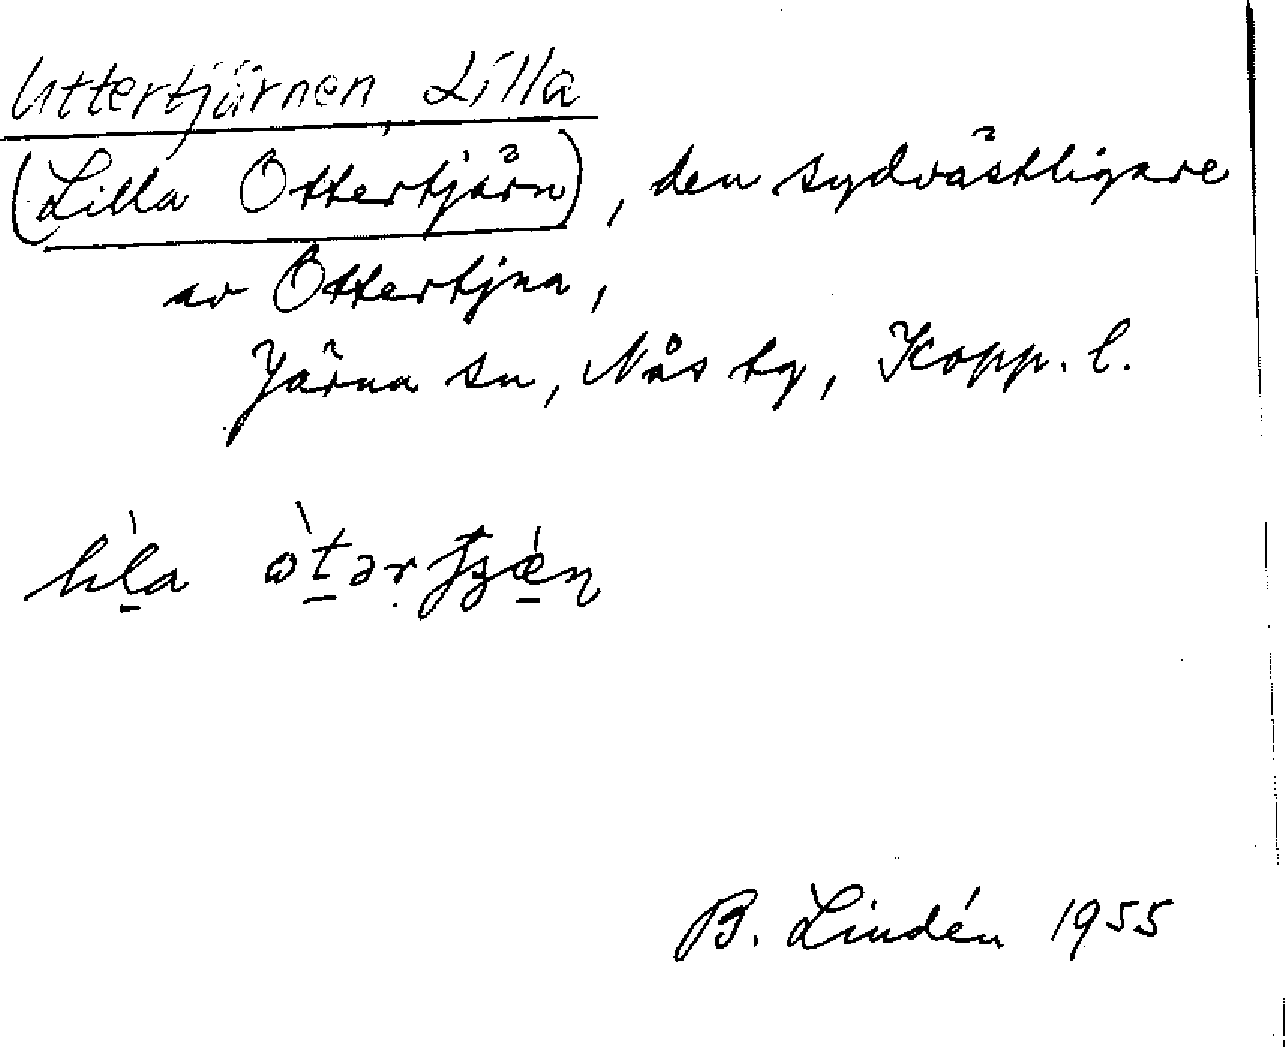 Uttertjärnen, Lilla
(Lilla Ottertjärn), den sydvästligare
av Ottertjna,
Järna sn, Nås tg, Kopp. l.
B. Lindén 1955